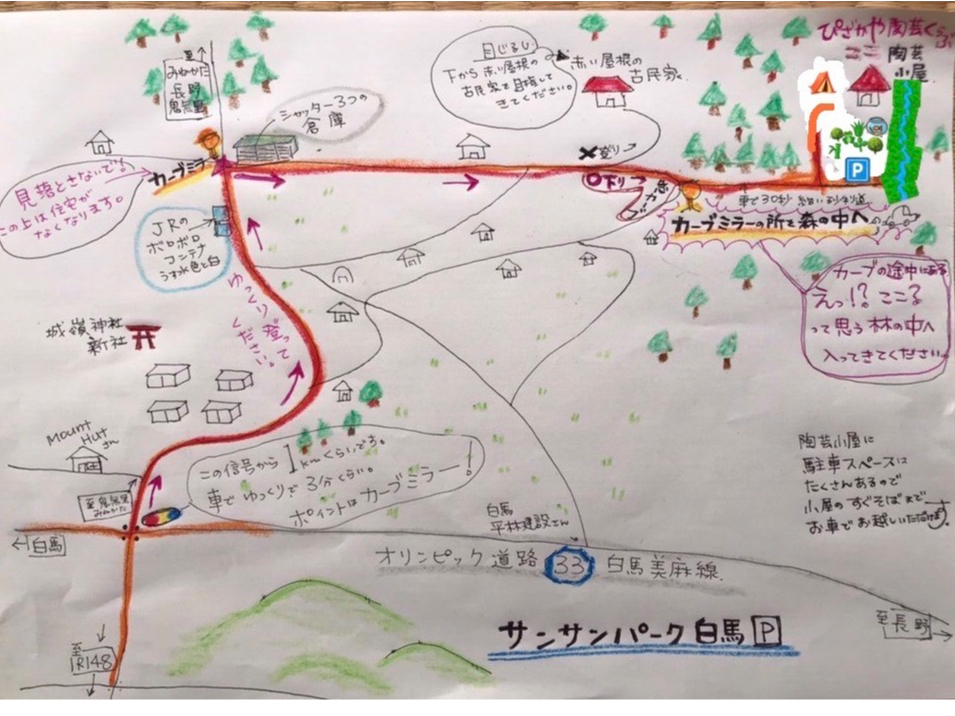 ぴざかや陶芸くらぶ
ここ 陶芸
小屋
至
みねかた
長野
鬼無里
シャッター3つの
倉庫
目じるし
下から赤い屋根の
古民家を目指して
きてください。
赤い屋根の
古民家
カーブミラー
見落とさないで
この上は住宅が
なくなります。
JRの
ボロボロ
コンテナ
うす水色と白
ゆっくり登って
ください。
×登り
○下り
P
車で30秒
カーブミラーの所を森の中へ
カーブの途中にある
えっ!?ここ?
って思う林の中へ
入ってきてください
城嶺神社
新社
Mount
Hut
この信号から1kmくらいです。
車でゆっくりで3分くらい。
ポイントはカーブミラー!
至鬼無里
みねかた
白馬
白馬
平林建設さん
オリンピック道路 33 白馬美麻線
陶芸小屋に
駐車スペースは
たくさんあるので
小屋のすぐそばまで
お車でお越しいただけます。
至
長野
サンサンパーク白馬 P
至
R148